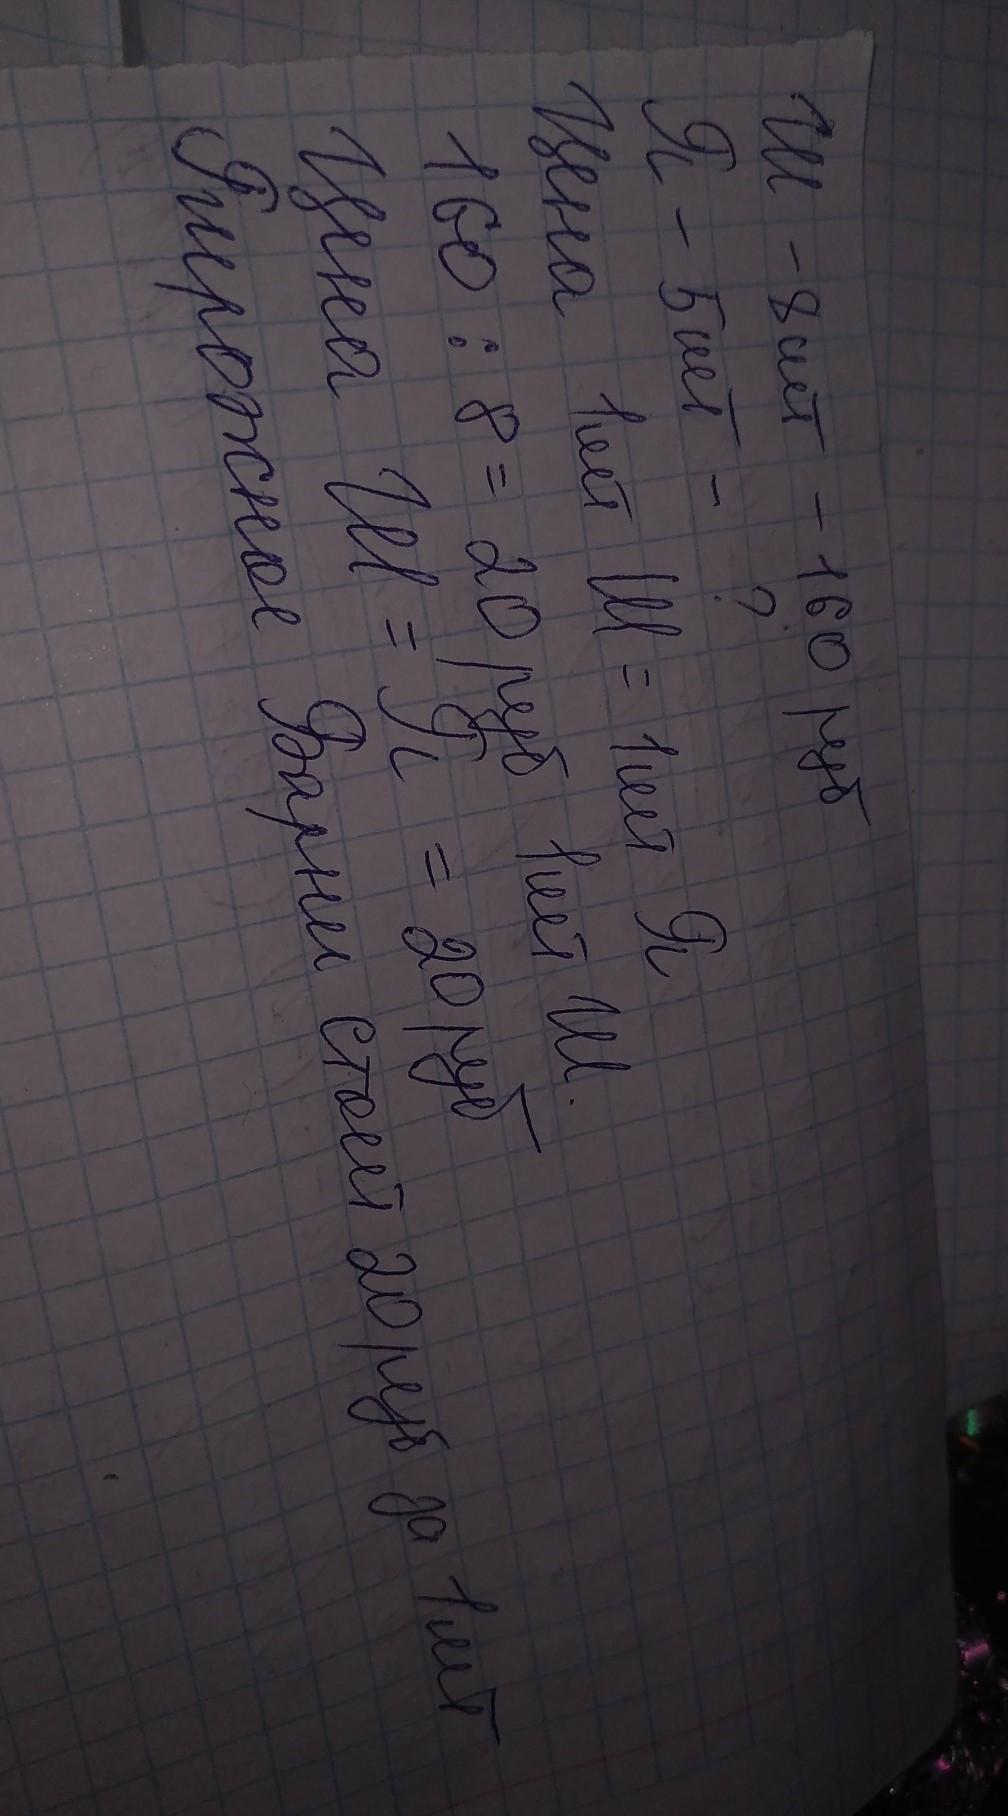 Ш - 8шт - 160 руб
П - 5шт - ?
Цена 1шт Ш = 1шт П
160 : 8 = 20 руб 1шт Ш.
Цена Ш = П = 20 руб
Пирожное Барни стоет 20 руб за 1шт